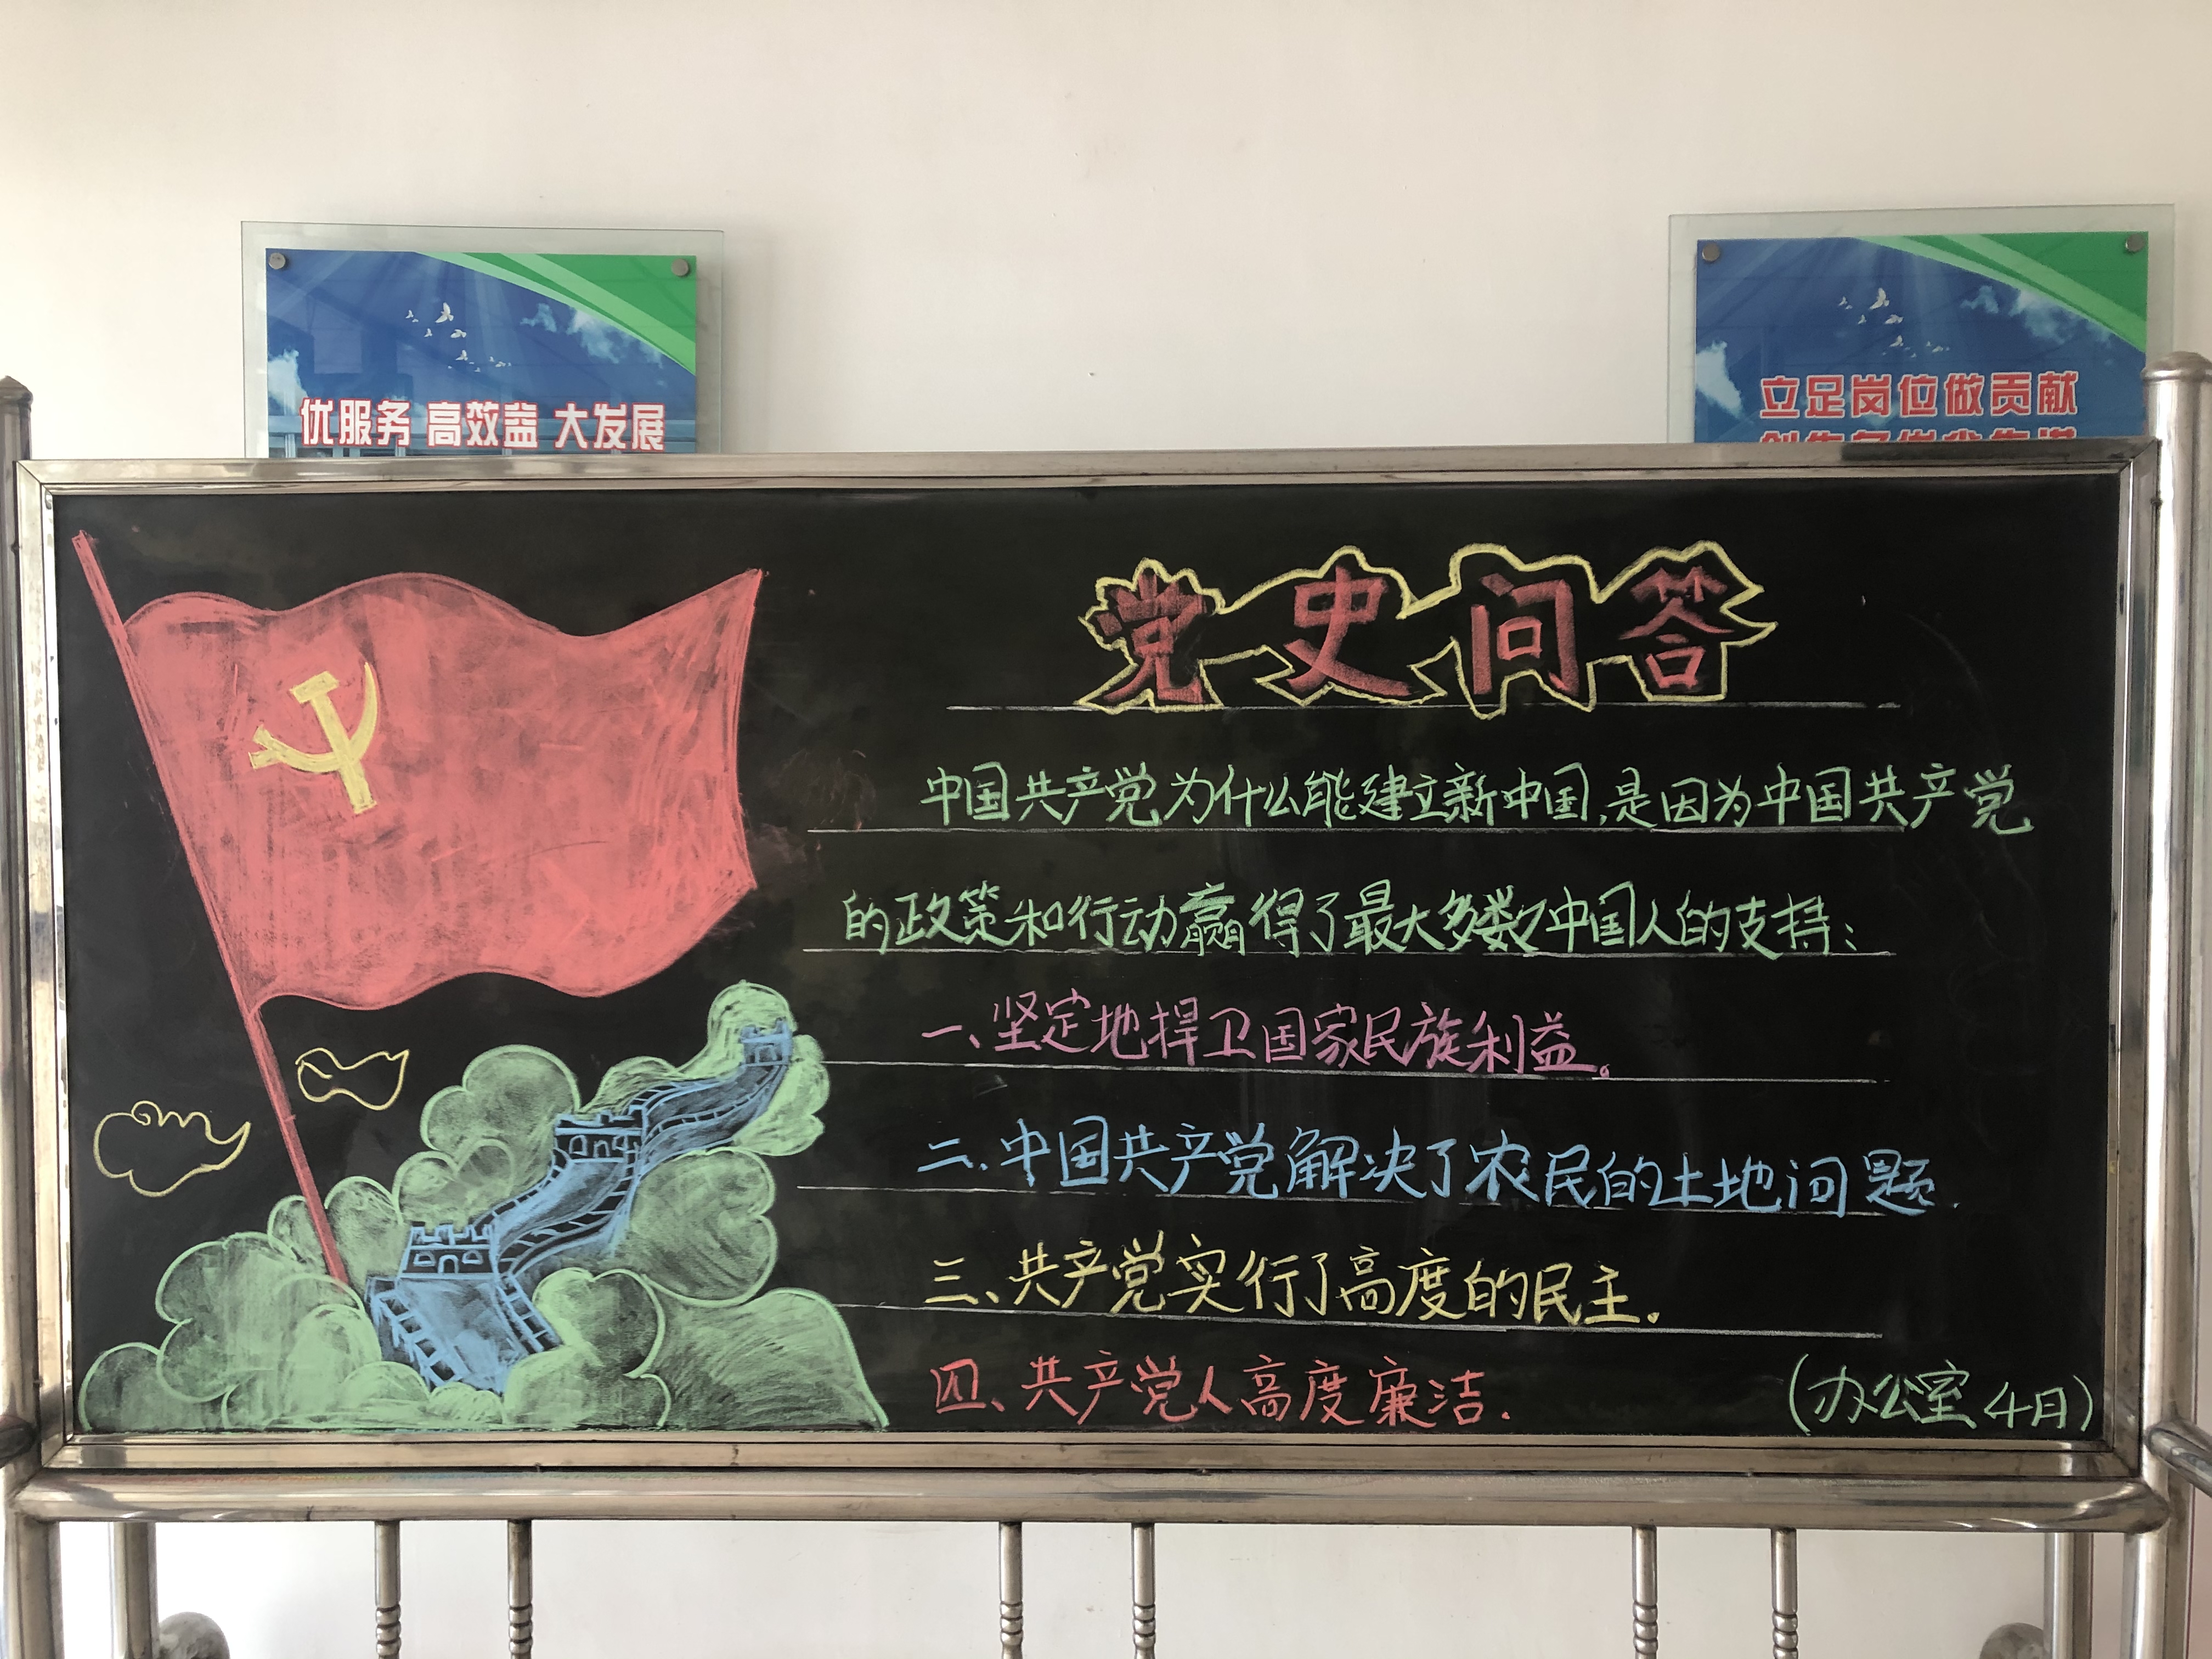 优服务 高效益 大发展
立足岗位做贡献
党史问答
中国共产党为什么能建立新中国,是因为中国共产党
的政策和行动赢得了最大多数中国人的支持:
一、坚定地捍卫国家民族利益。
二.中国共产党解决了农民的土地问题.
三、共产党实行了高度的民主.
四、共产党人高度廉洁.
(办公室 4日)